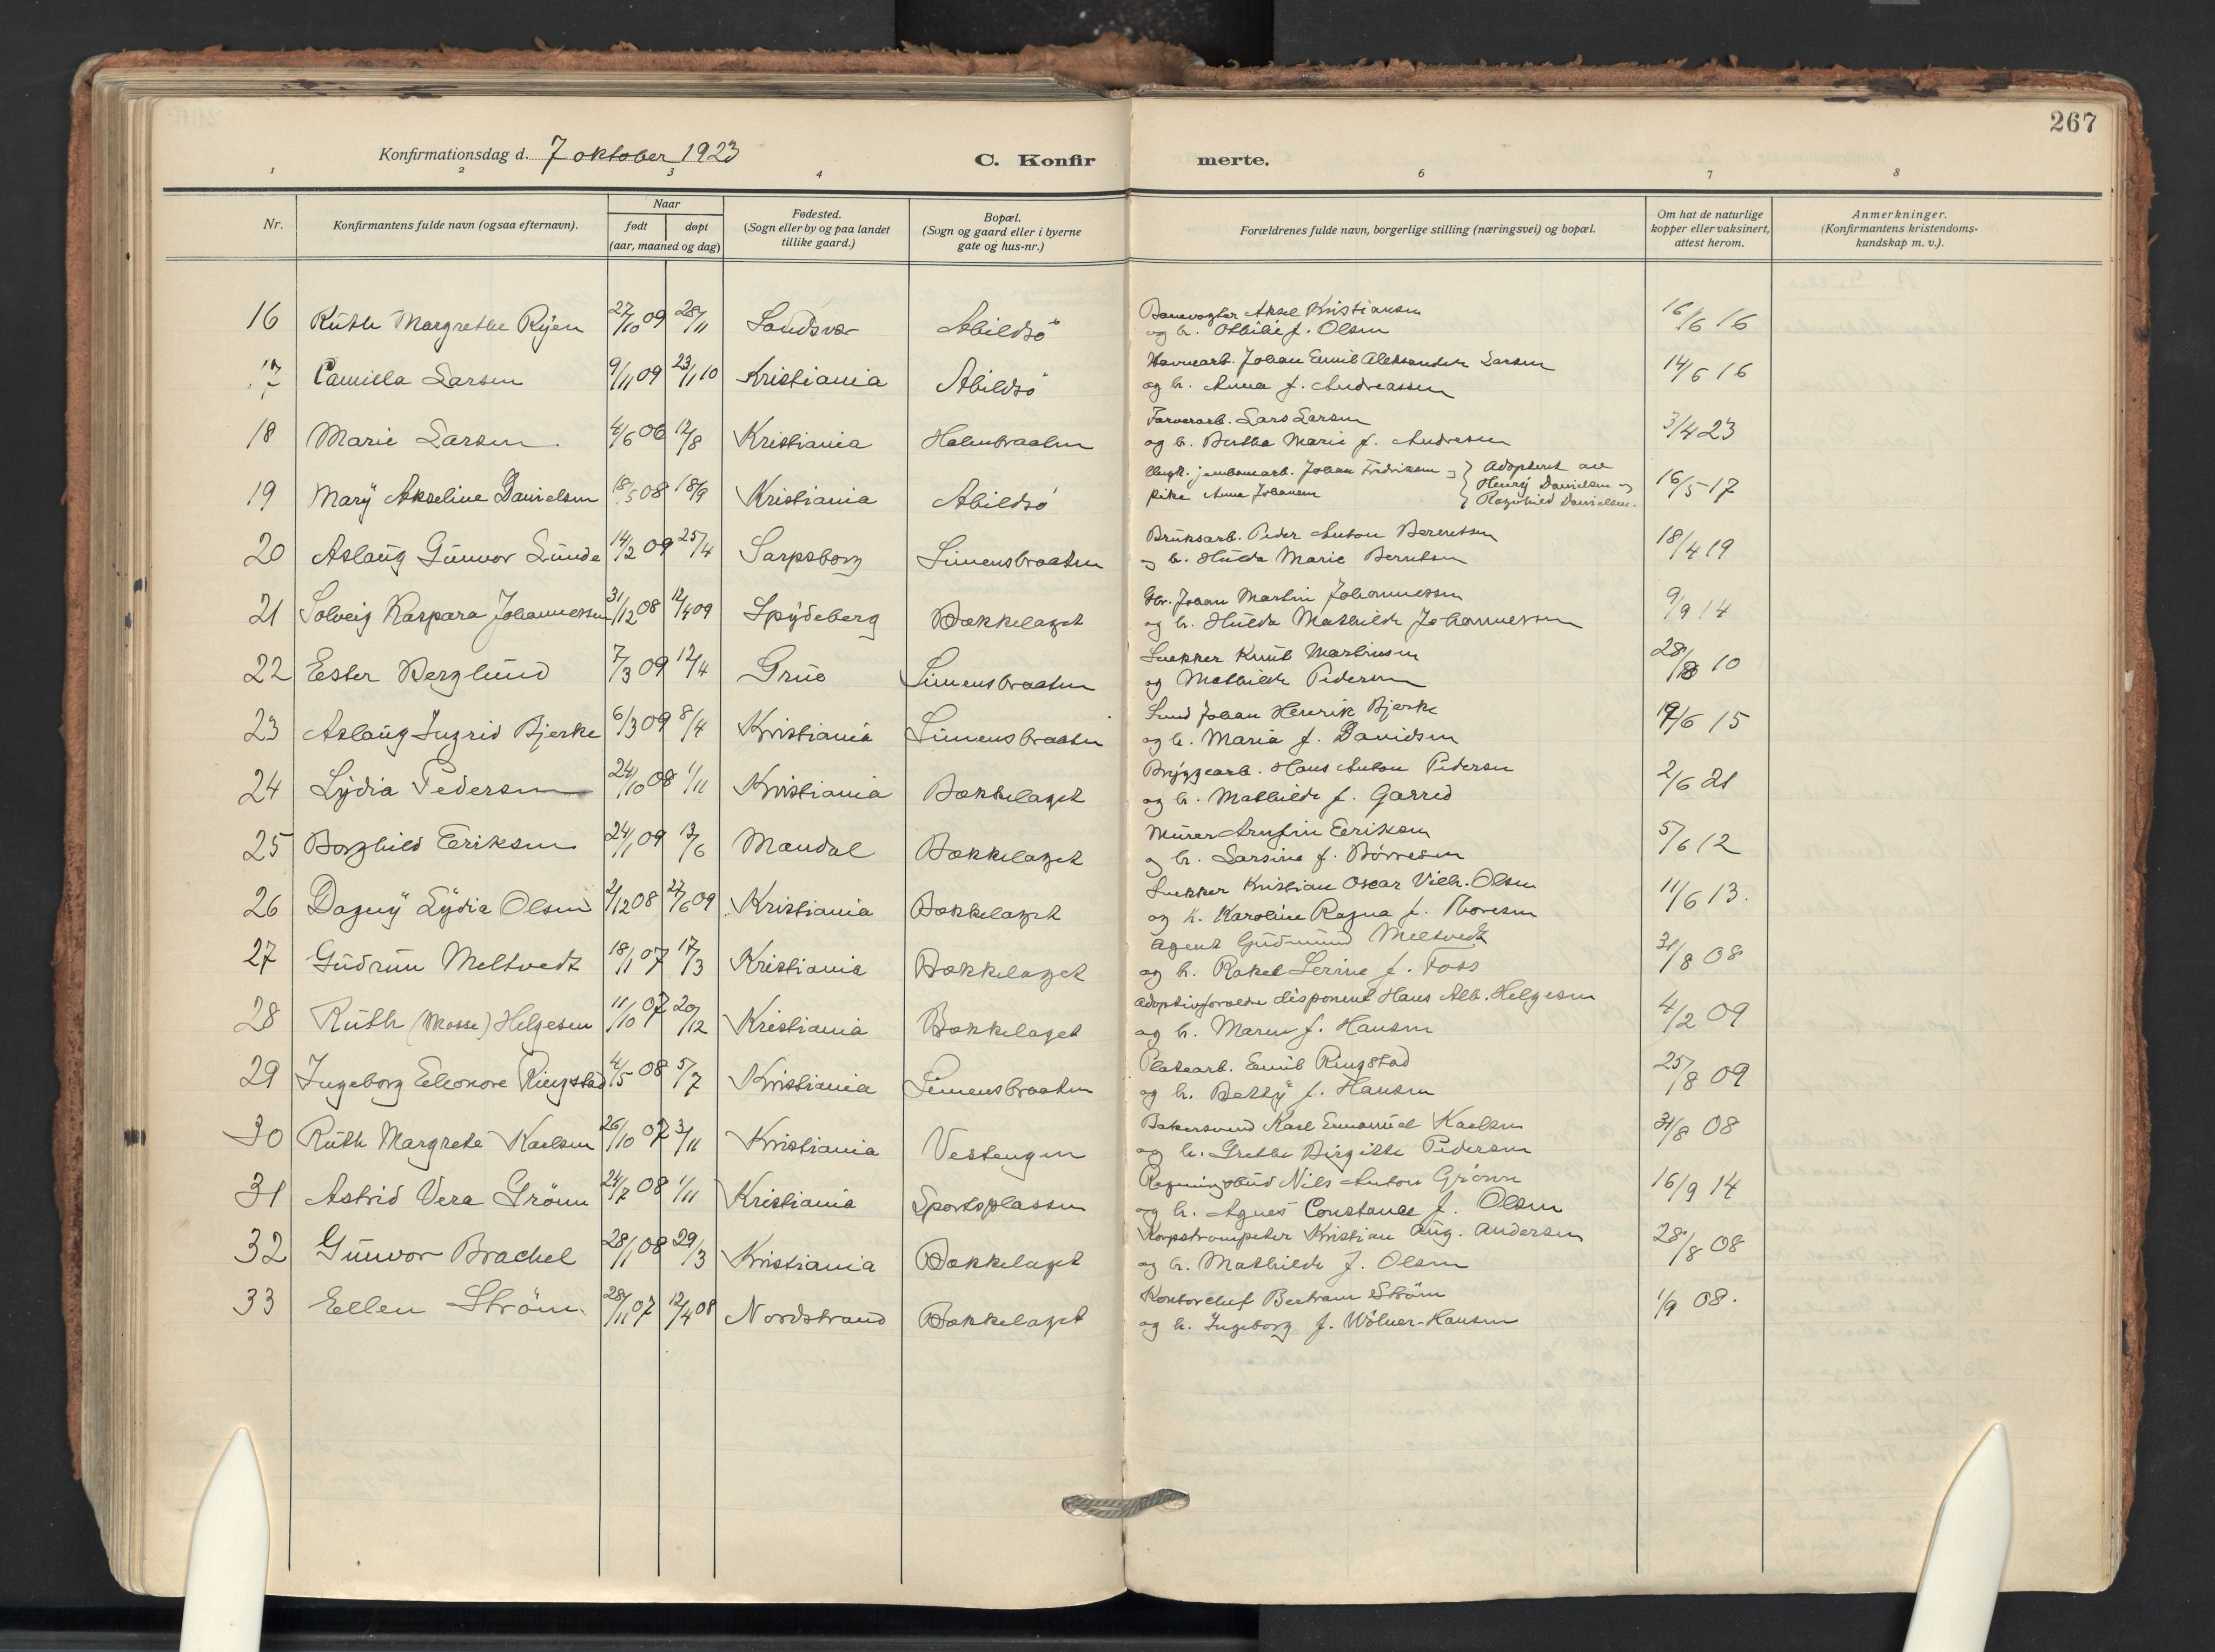 267
Konfirmationsdag d. 7 oktober 1923
C. Konfir merte.
1 2 3 4 6 7 8
Nr.
Konfirmantens fulde navn (ogsaa efternavn).
Naar
født døpt
(aar, maaned og dag)
Fødested.
(Sogn eller by og paa landet
tillike gaard.)
Bopæl.
(Sogn og gaard eller i byerne
gate og hus-nr.)
Forældrenes fulde navn, borgerlige stilling (næringsvei) og bopæl.
Om hat de naturlige
kopper eller vaksinert,
attest herom.
Anmerkninger.
(Konfirmantens kristendoms-
kundskap m. v.).
16 Ruth Margrethe Ryen 27/10 09 28/11 Sandsvær Abildsö Banevogter Aksel Kristiansen 16/6 16
og h. Othilie f. Olsen
17 Camilla Larsen 9/11 09 23/1 10 Kristiania Abildsö Havnearb. Johan Emil Aleksander Larsen 14/6 16
og h. Anna f. Andreassen
18 Marie Larsen 4/6 06 12/8 Kristiania Holmbraaten Farverarb. Lars Larsen 3/4 23
og h. Bertha Marie f. Andresen
19 Mary Akseline Danielsen 18/5 08 18/9 Kristiania Abildsö Ungk. jernbanearb. Johan Fredriksen og } Adopteret av 16/5 17
pike Anna Johansen } Henry Danielsen og
} Ragnhild Danielsen.
20 Aslaug Gunvor Lunde 14/2 09 25/4 Sarpsborg Simensbraaten Bruksarb. Peder Anton Berentsen 18/4 19
og h. Hulda Marie Berntsen
21 Solveig Kaspara Johannessen 31/12 08 12/4 09 Spydeberg Bækkelaget Gbr. Johan Martin Johannessen 9/9 14
og h. Hulda Mathilde Johannessen
22 Ester Berglund 7/3 09 12/4 Grue Simensbraaten Snekker Knut Martinsen 28/8 10
og Mathilde Pedersen
23 Aslaug Ingrid Bjerke 6/3 09 8/4 Kristiania Simensbraaten Smed Johan Henrik Bjerke 19/6 15
og h. Maria f. Davidsen
24 Lydia Pedersen 24/10 08 1/11 Kristiania Bækkelaget Bryggearb. Hans Anton Pedersen 2/6 21
og h. Mathilde f. Garred
25 Borghild Eriksen 24/1 09 13/6 Mandal Bækkelaget Murer Arnfin Eriksen 5/6 12
og h. Larsine f. Börresen
26 Dagny Lydia Olsen 2/12 08 27/6 09 Kristiania Bækkelaget Snekker Kristian Oscar Vilh. Olsen 11/6 13.
og h. Karoline Ragna f. Thoresen
27 Gudrun Meltvedt 18/1 07 17/3 Kristiania Bækkelaget Agent Gudmund Meltvedt 31/8 08
og h. Rakel Serine f. Foss
28 Ruth (Mosse) Helgesen 11/10 07 20/12 Kristiania Bækkelaget Adoptivforældre disponent Hans Alb. Helgesen 4/2 09
og h. Maren f. Hansen
29 Ingeborg Eleonore Ringstad 4/5 08 5/7 Kristiania Simensbraaten Platearb. Emil Ringstad 25/8 09
og h. Betty f. Hansen
30 Ruth Margrete Karlsen 26/10 07 3/11 Kristiania Vestengen Bakersvend Karl Emanuel Karlsen 31/8 08
og h. Grethe Birgitte Pedersen
31 Astrid Vera Grönn 24/7 08 1/11 Kristiania Sportsplassen Regningsbud Nils Anton Grönn 16/9 14
og h. Agnes Constance f. Olsen
32 Gunvor Brachel 28/1 08 29/3 Kristiania Bækkelaget Korpstrompeter Kristian Aug. Andersen 28/8 08
og h. Mathilde f. Olsen
33 Ellen Ström. 28/11 07 12/4 08 Nordstrand Bækkelaget Kontorchef Bertram Ström 1/9 08.
og h. Ingeborg f. Wölner-Hansen